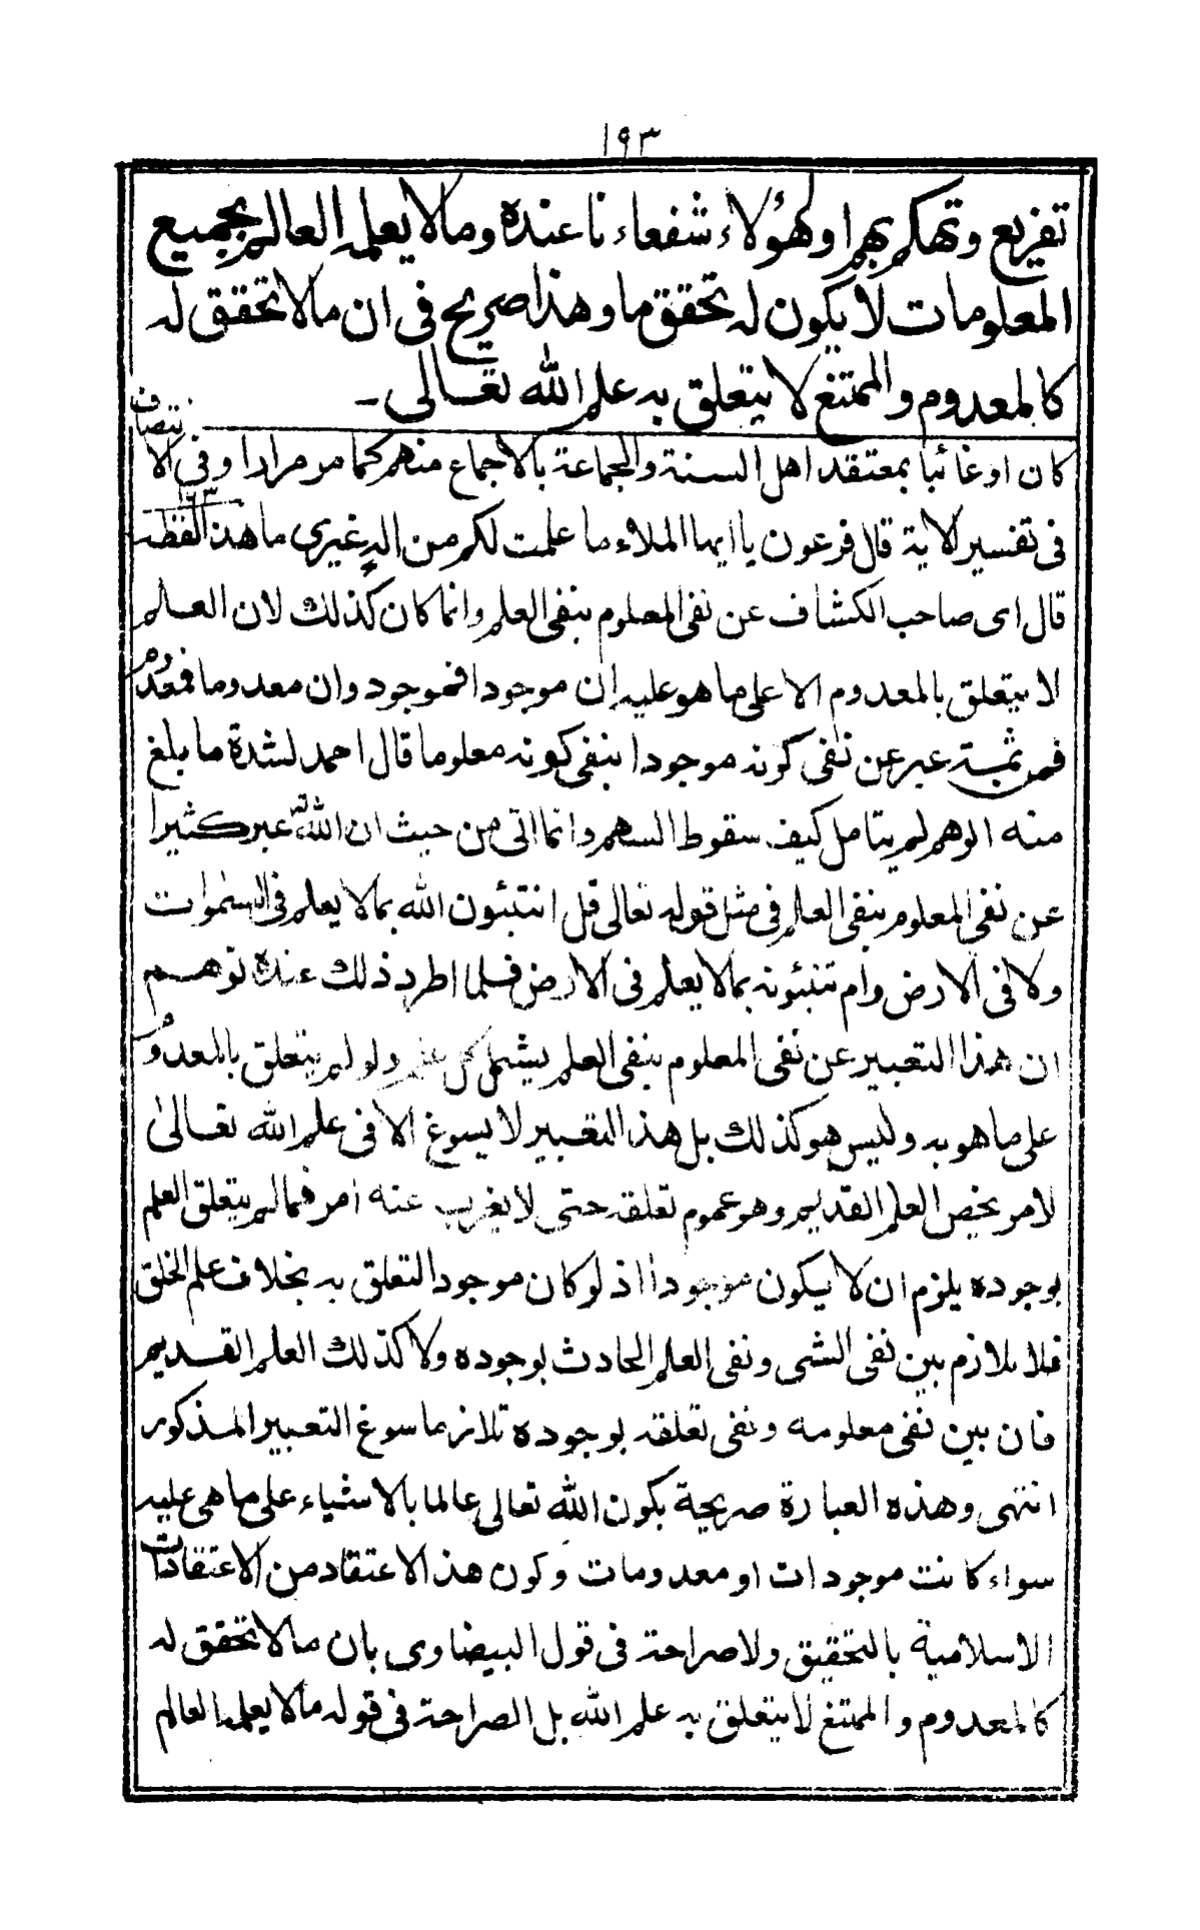 ١٩٣
تفريع وتهكم بهم او هؤلاء شفعاء نا عنده ومالا يعلمه العالم بجميع
المعلومات لا يكون له تحقق ما وهذا صريح فى ان مالا تحقق له
كالمعدوم والممتنع لا يتعلق به علم الله تعالى ـ
كان او غائبا بمعتقد اهل السنة والجماعة بالاجماع منهم كما مر مرارا وفى الا
نتصاف
فى تفسير لاية قال فرعون يا ايها الملاء ما علمت لكم من اله غيرى ما هذا لفظه
قال اى صاحب الكشاف عن نفى المعلوم بنفى العلم وانما كان كذلك لان العلم
لا يتعلق بالمعدوم الا على ما هو عليه ان موجودا فموجود وان معدوما فمعدوم
فمن ثمة عبر عن نفى كونه موجودا بنفى كونه معلوما قال احمد لشدة ما بلغ
منه الوهم لم يتامل كيف سقوط السهم وانما اتى من حيث ان الله عبر كثيرا
عن نفى المعلوم بنفى العلم فى مثل قوله تعالى قل اتنبئون الله بمالا يعلم فى السموات
ولا فى الارض وام تنبئونه بمالا يعلم فى الارض فلما اطرد ذلك عنده توهم
ان هذا التعبير عن نفى المعلوم بنفى العلم يشمل كل علم ولو لم يتعلق بالمعدوم
على ما هو به وليس هو كذلك بل هذا التعبير لا يسوغ الا فى علم الله تعالى
لامر يخص العلم القديم وهو عموم تعلقه حتى لا يغرب عنه امر فمالم يتعلق العلم
بوجوده يلزم ان لا يكون موجودا اذ لو كان موجود التعلق به بخلاف علم الخلق
فلا تلازم بين نفى الشى ونفى العلم الحادث بوجوده ولا كذلك العلم القديم
فان بين نفى معلومه ونفى تعلقه بوجوده تلازما سوغ التعبير المذكور
انتهى وهذه العبارة صريحة بكون الله تعالى عالما بالاشياء على ما هى عليه
سواء كانت موجودات او معدومات وكون هذا الاعتقاد من الاعتقادات
الاسلامية بالتحقيق ولا صراحة فى قول البيضاوى بان مالا تحقق له
كالمعدوم والممتنع لا يتعلق به علم الله بل الصراحة فى قوله مالا يعلمه العالم